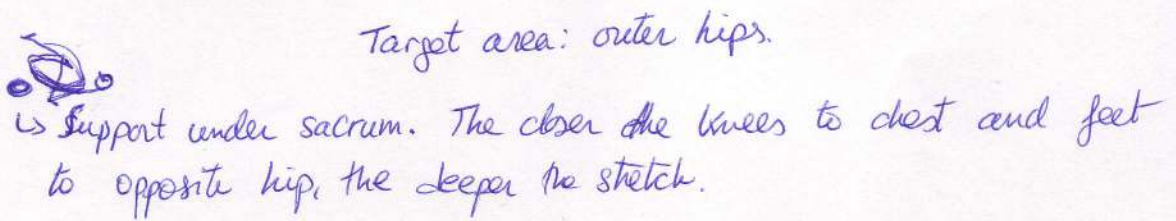 Target area: outer hips.
↳ Support under sacrum. The closer the knees to chest and feet
to opposite hip, the deeper the stretch.